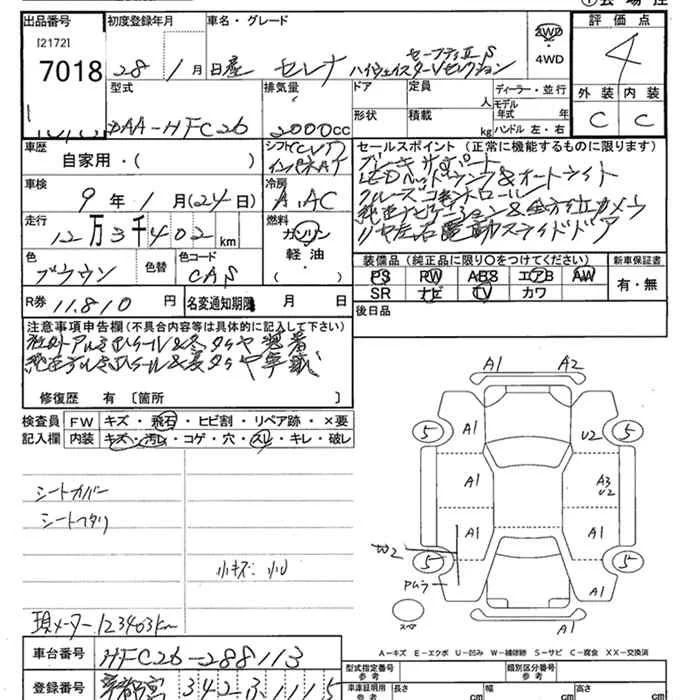 出品番号
[2172]
7018
初度登録年月
28年1月
車名・グレード
日産 セレナ ハイウェイスターVセレクション
セーフティII S
2WD
・
4WD
評価点
4
外装 内装
C C
型式
DAA-HFC26
排気量
2000cc
ドア
形状
定員
人
積載
kg
ディーラー・並行
モデル年式 年
ハンドル 左・右
車歴
自家用・( )
シフト CVT
インパネAT
セールスポイント (正常に機能するものに限ります)
ブレーキサポート
LEDヘッドランプ&オートライト
クルーズコントロール
純正ナビゲーション&全方位カメラ
リヤ左右電動スライドドア
車検
9年1月(24日)
冷房
A.AC
走行
12万3千402km
燃料
ガソリン
軽油
・
( )
色
ブラウン
色替
色コード
CAS
装備品 (純正品に限り○をつけてください)
PS RW ABS エアB AW
SR ナビ TV カワ
新車保証書
有・無
R券 11.810円
名変通知期限 月 日
後日品
注意事項申告欄(不具合内容等は具体的に記入して下さい)
社外アルミホイール&冬タイヤ装着
純正アルミホイール&夏タイヤ車載
修復歴 有 〔箇所 〕
検査員記入欄
FW キズ・飛石・ヒビ割・リペア跡・×要
内装 キズ・汚れ・コゲ・穴・スレ・キレ・破レ
シートカバー
シートヘタリ
小キズ 小U
現メーター123403km
A1 A2
5 A1 U2 5
A1 A3
U2
A1 A1
W2
5 A1 A1 5
スペア
A1
A-キズ E-エクボ U-凹み W-補修跡 S-サビ C-腐食 XX-交換済
車台番号
HFC26-288113
型式指定番号
参考
類別区分番号
参考
登録番号
宇都宮 342 ひ 1115
車庫証明用
参考
長さ cm
幅 cm
高さ cm